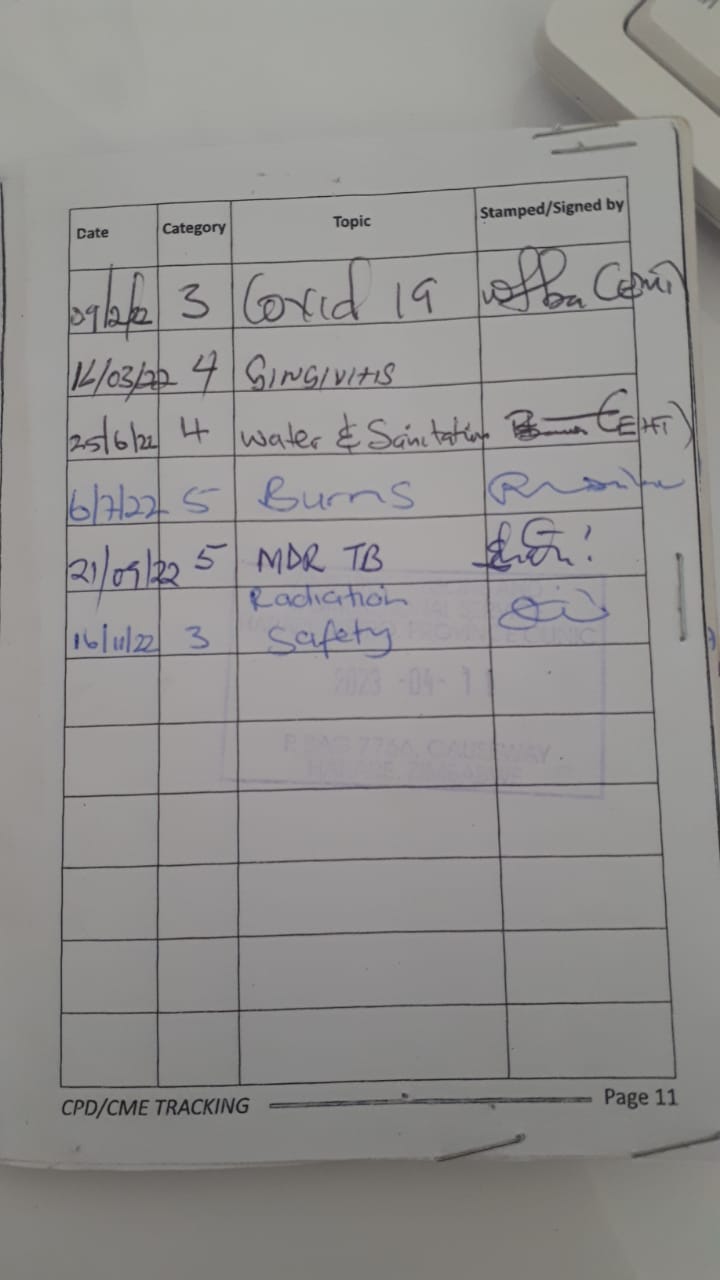 Date Category Topic Stamped/Signed by
09/2/22 3 Covid 19
14/03/22 4 GINGIVITIS
25/6/22 4 Water & Sanitation (EHT)
6/7/22 5 Burns
21/09/22 5 MDR TB
Radiation
16/11/22 3 Safety
PROVINCE CLINIC
2023 -04- 11
P BAG 775A, CAUSEWAY
HARARE, ZIMBABWE
CPD/CME TRACKING Page 11